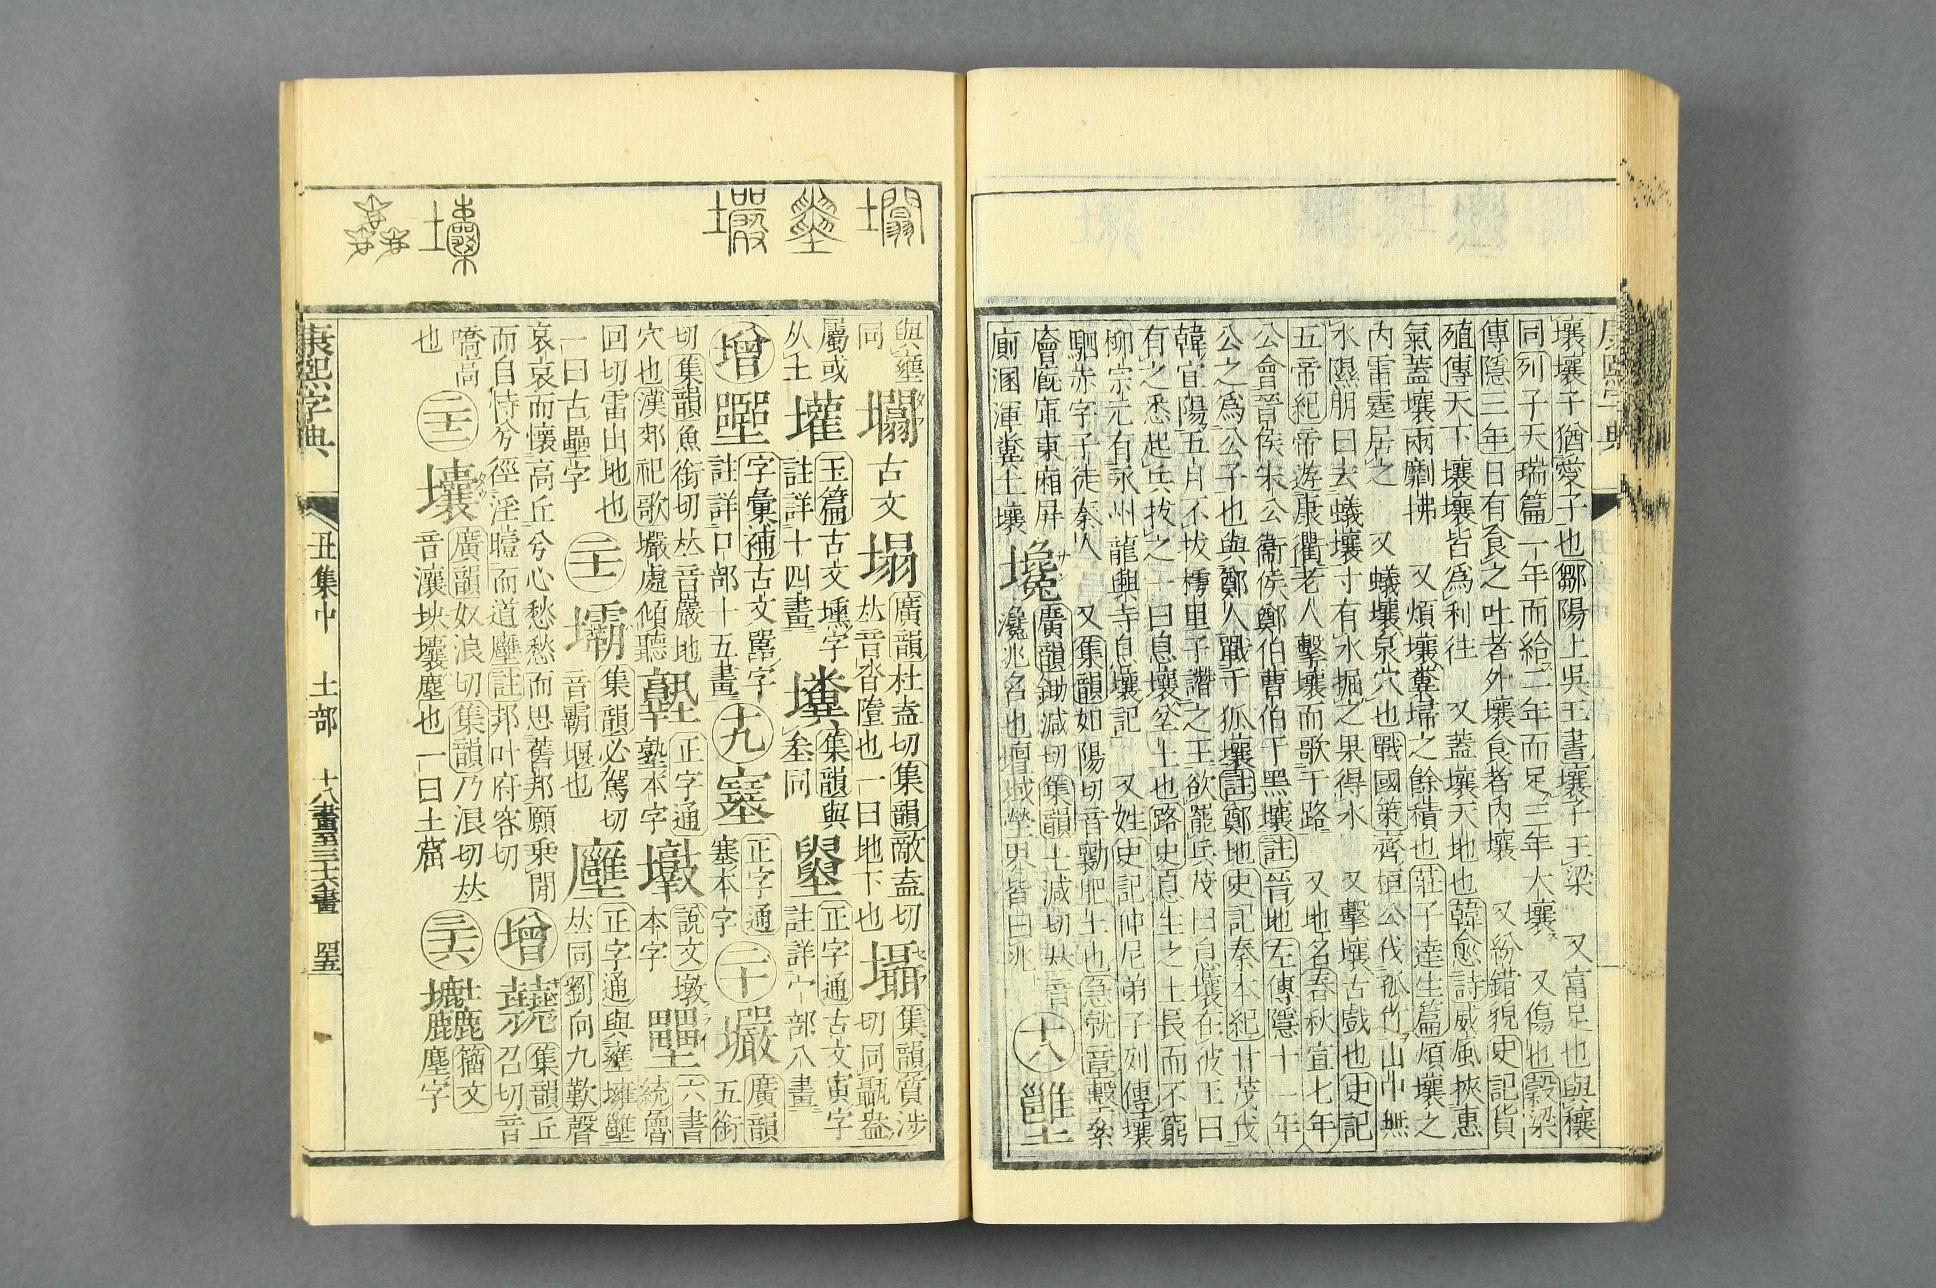 壤壤子猶愛子也鄒陽上吳王書壤子王梁 又富足也與穰
同列子天瑞篇一年而給二年而足三年大壤 又傷也穀梁
傳隱三年日有食之吐者外壤食者內壤 又紛錯貌史記貨
殖傳天下壤壤皆爲利往 又蓋壤天地也韓愈詩威風挾惠
氣蓋壤兩劘拂 又煩壤糞埽之餘積也莊子達生篇煩壤之
內雷霆居之 又蟻壤泉穴也戰國策齊桓公伐孤竹山中無
水隰朋曰去蟻壤寸有水掘之果得水 又擊壤古戲也史記
五帝紀帝遊康衢老人擊壤而歌于路 又地名春秋宣七年
公會晉侯宋公衞侯鄭伯曹伯于黑壤註晉地左傳隱十一年
公之爲公子也與鄭人戰于狐壤註鄭地史記秦本紀甘茂伐
韓宜陽五月不拔樗里子讚之王欲罷兵茂曰息壤在彼王曰
有之悉起兵拔之一曰息壤坌土也路史息生之土長而不窮
柳宗元有永州龍興寺息壤記 又姓史記仲尼弟子列傳壤
駟赤字子徒秦人 又集韻如陽切音勷肥土也急就章墼絫
廥廐庫東廂屏
廁溷渾糞土壤
壈
廣韻鋤減切集韻士減切𠀤音
瀺兆名也壇域塋界皆曰兆
十八
與壅
同
古文
塌
廣韻杜盍切集韻敵盍切
𠀤音沓墮也一曰地下也
壛
集韻質涉
切同㼭盎
屬或
从土
玉篇古文壎字
註詳十四畫
集韻與
坌同
正字通古文寅字
註詳宀部八畫
增
字彙補古文嚚字
註詳口部十五畫
十九
正字通
塞本字
二十
巖
廣韻
五銜
切集韻魚銜切𠀤音巖地
穴也漢郊祀歌壧處傾聽
正字通
塾本字
說文墩
本字
六書
統魯
回切雷出地也
一曰古壘字
二十一
壩
集韻必駕切
音霸堰也
正字通與壅壅𡓱
𠀤同劉向九歎聲
哀哀而懷高丘兮心愁愁而思舊邦願乗閒
而自恃兮徑淫曀而道壅註邦叶府容切
增
集韻丘
召切音
嘺高
也
二十二
廣韻奴浪切集韻乃浪切𠀤
音灢坱壤塵也一曰土窟
三十六
籀文
塵字
康熙字典
丑集中 土部 十八畫至三十六畫